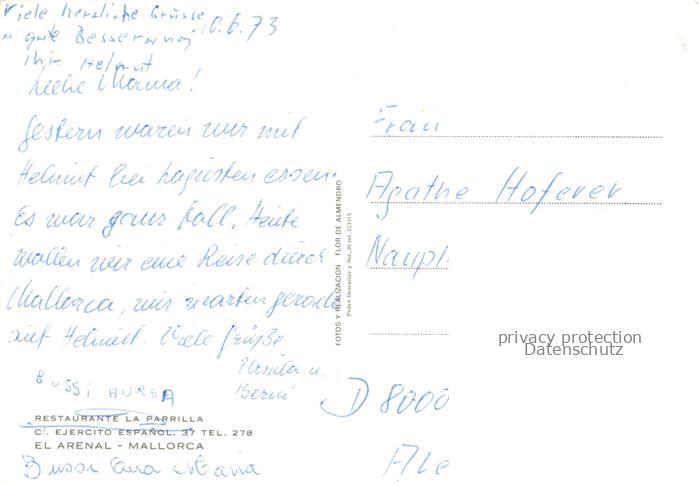 Viele herzliche Grüsse
u. gute Besserung 10.6.73
Ihr Helmut
Liebe Mama!
Gestern waren wir mit
Helmut bei essen.
Es war ganz toll. Heute
wollen wir eine Reise durch
Mallorca, wir warten gerade
auf Helmut. Viele Grüße
Ursula u.
Berni
BUSSI AUREA
RESTAURANTE LA PARRILLA
C/. EJERCITO ESPAÑOL, 37 TEL. 278
EL ARENAL - MALLORCA
Bussi Maria
FOTOS Y REALIZACION FLOR DE ALMENDRO
Frau
Agathe Hoferer
Naupl
D 8000
privacy protection
Datenschutz